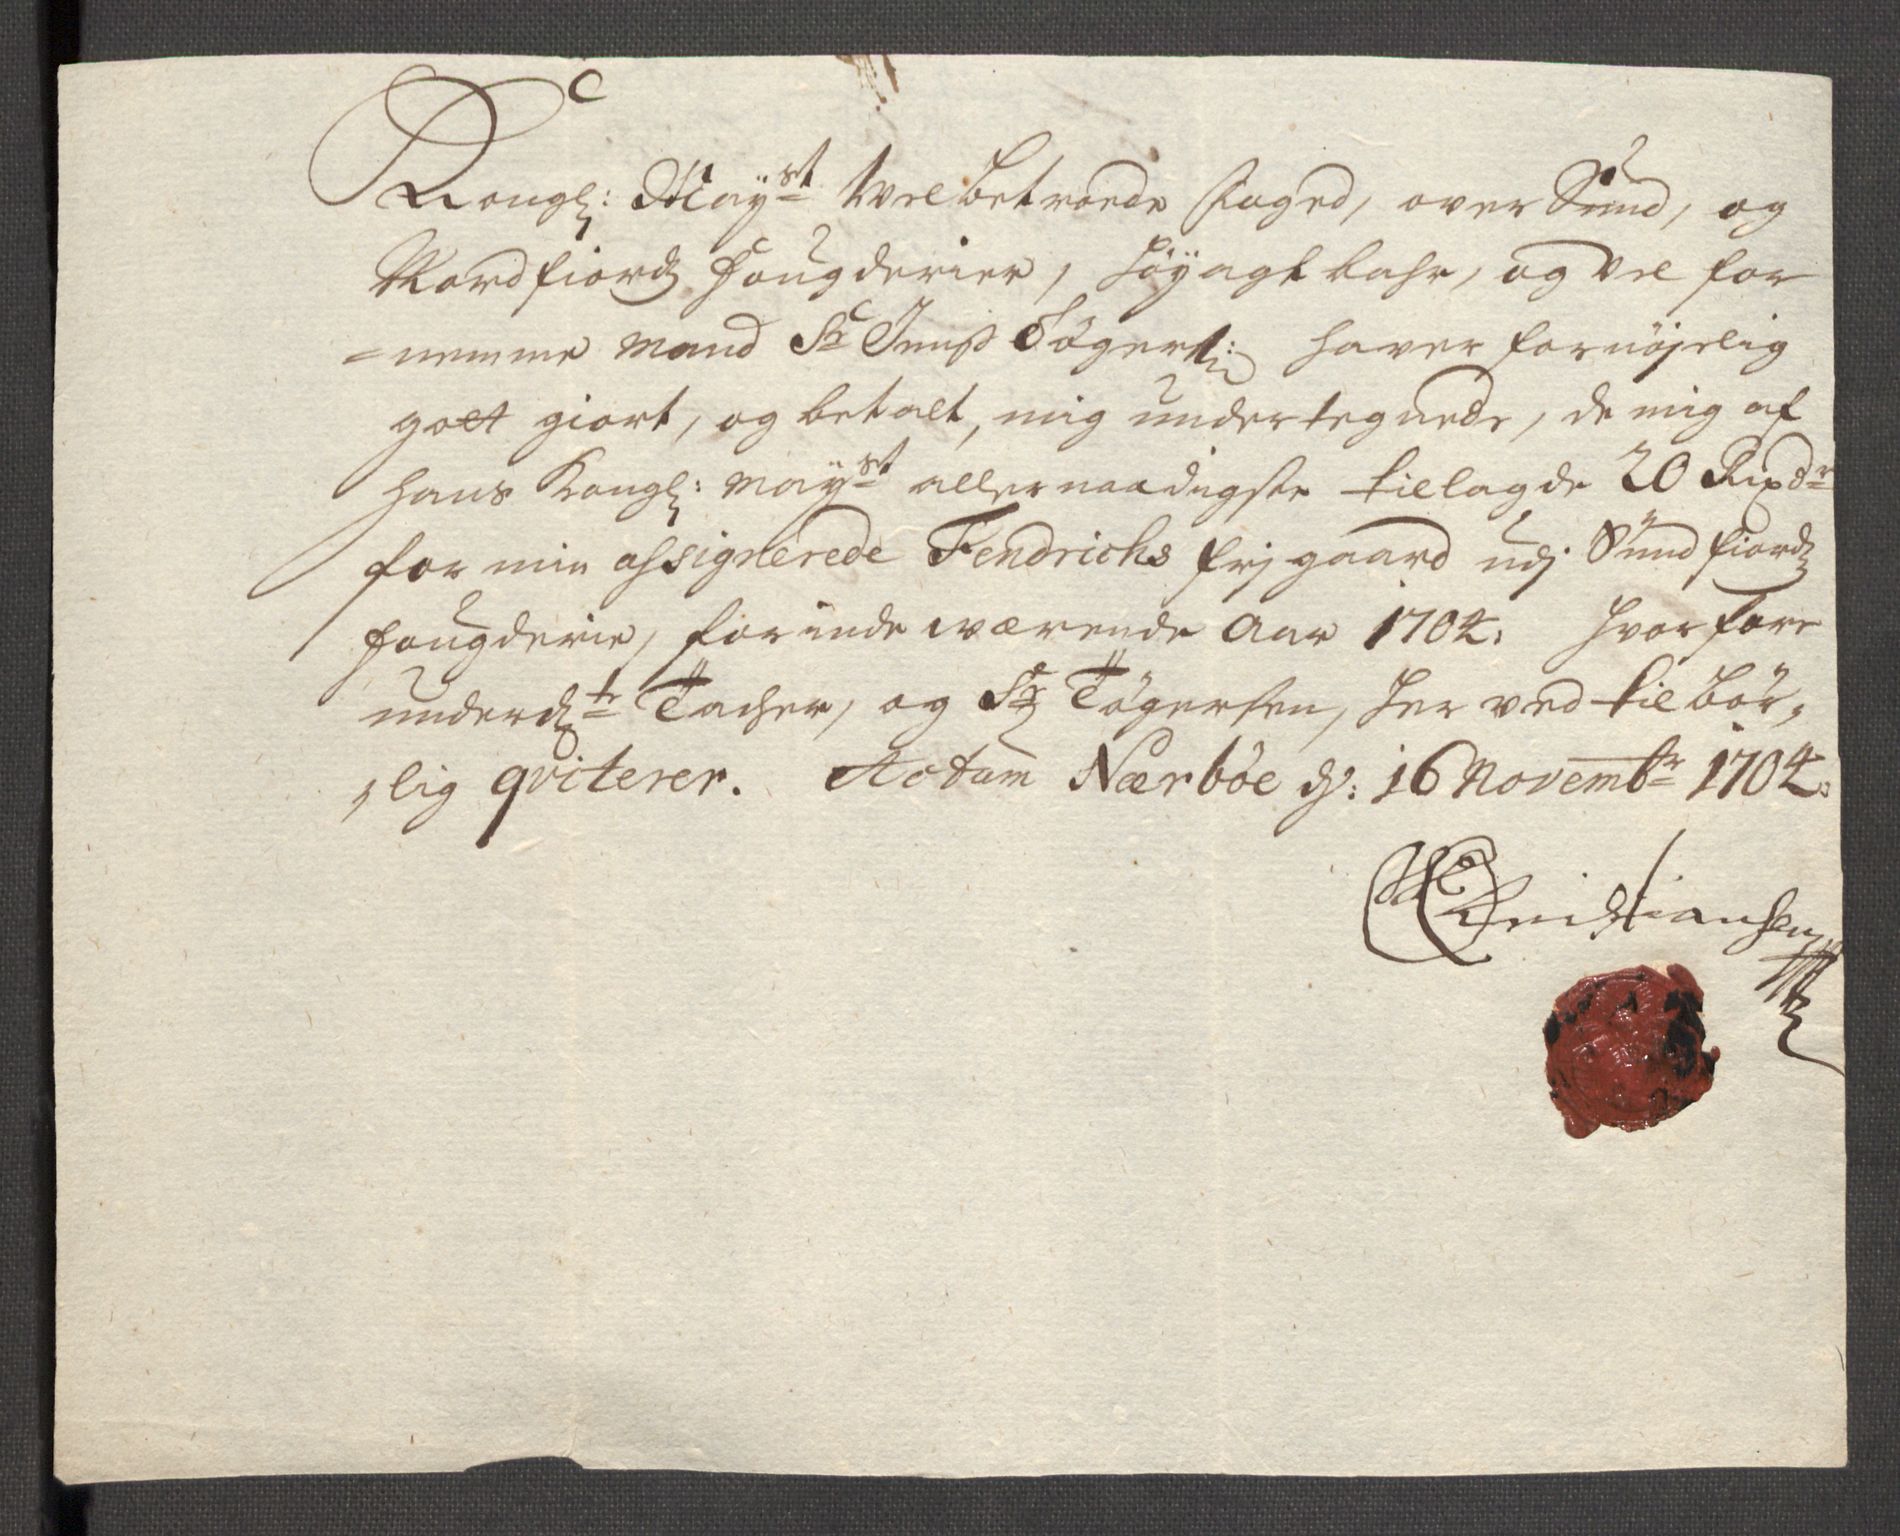 Kongl: Mayst Welbetroede Foged, over Sund, og
Nordfiords Fougderier, Høyagtbahr, og vel for
=nemme mand Sr Jens Tøgers: haver fornøjelig
gott giort, og betalt, mig undertegnede, de mig af
hans Kongl: Mayst allernaadigste tillagde 20 Rixdr
for min assignerede Fendrichs frj gaard udj Sundfiords
Fougderie, for indeværende Aar 1704. Hvorfore
underdte Tacher, og Sr Tøgersen, her ved tilbør,
,lig qviterer. Actum Nærbøe d: 16 Novembr 1704.
Christiansen